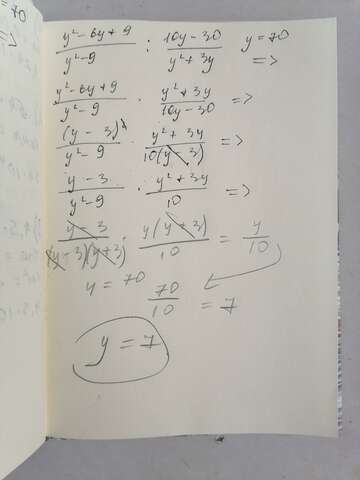 y²-6y+9/y²-9 : 10y-30/y²+3y y=70 =>
y²-6y+9/y²-9 · y²+3y/10y-30 =>
(y-3)²/y²-9 · y²+3y/10(y-3) =>
y-3/y²-9 · y²+3y/10 =>
y-3/(y-3)(y+3) · y(y+3)/10 = y/10
y=70 70/10 = 7
y=7
70